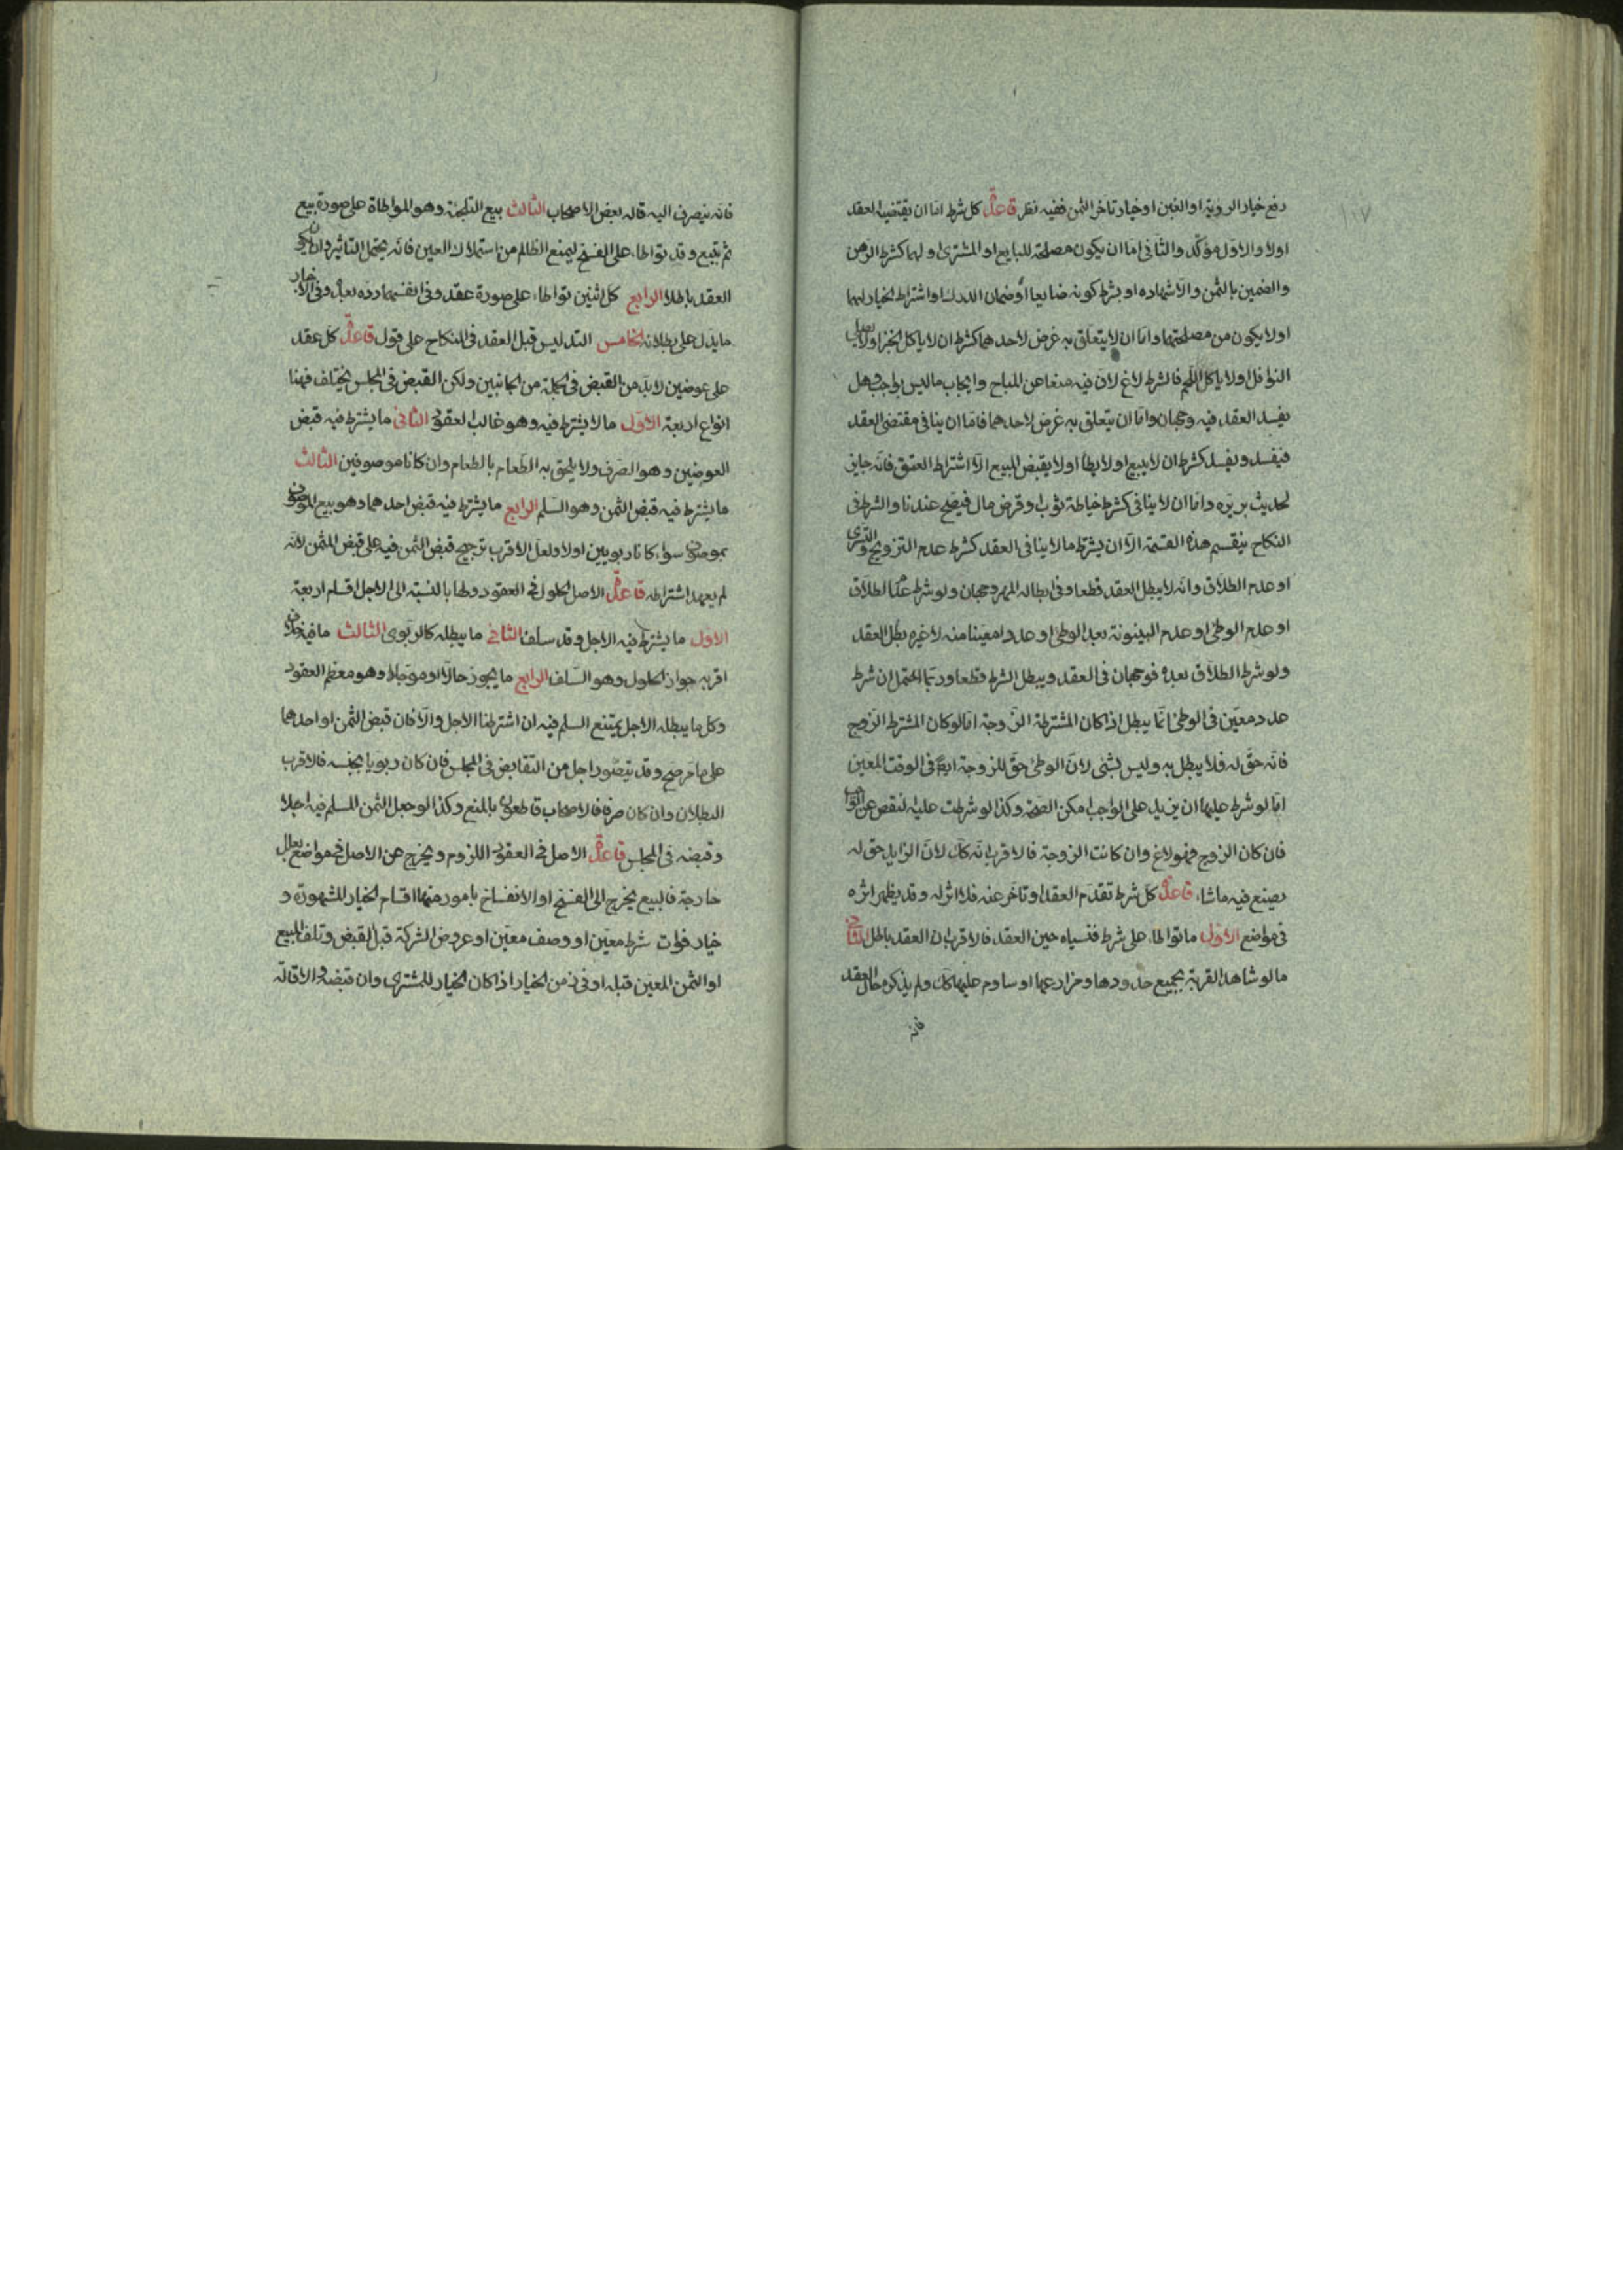 ١١٧
رفع خيار الروية او الغبن او خيار تاخر الثمن ففيه نظر قاعدة كل شرط اما ان يقتضيه العقد
اولا والاول مؤكد والثانى اما ان يكون مصلحة للبايع او المشترى او لهما كشرط الرهن
والضمين بالثمن والاشهاد او بشرط كونه صايعا او ضمان الدرك او اشتراط الخيار لهما
اولا يكون من مصلحتهما واما ان لا يتعلق به غرض لاحدهما كشرط ان لا ياكل الخبز اولا يصلى
النوافل اولا ياكل اللحم فالشرط لاغ لان فيه منعا عن المباح وايجاب ما ليس بواجب وهل
يفسد العقد فيه وجهان واما ان يتعلق به غرض لاحدهما فاما ان ينافى مقتضى العقد
فيفسد ويفسد كشرط ان لا يبيع اولا يطأ اولا يقبض المبيع الا اشتراط العتق فانه جايز
لحديث بريره واما ان لا ينافى كشرط خياطة ثوب او قرض مال فيصح عندنا والشرط فى
النكاح ينقسم هذه القسمة الا ان يشترط ما لا ينافى العقد كشرط عدم التزويج والتسرى
او عدم الطلاق وانه لا يبطل العقد قطعا وفى ابطاله المهر وجهان ولو شرط عدم الطلاق
او عدم الوطئ او عدم البينونة بعد الوطئ او عددا معينا منه لا غيره بطل العقد
ولو شرط الطلاق بعده فوجهان فى العقد ويبطل الشرط قطعا وربما احتمل ان شرط
عدد معين فى الوطئ انما يبطل اذا كان المشترطة الزوجة اما لو كان المشترط الزوج
فانه حق له فلا يبطل به وليس بشئ لان الوطئ حق للزوجة ايضا فى الوقت المعين
اما لو شرط عليها ان يزيد على الواجب امكن الصحة وكذا لو شرطت عليه لنقص عن الواجب
فان كان الزوج فهو لاغ وان كانت الزوجة فالاقرب انه كك لان الزايد حق له
يصنع فيه ماشاء قاعدة كل شرط تقدم العقد او تاخر عنه فلا اثر له وقد يظهر اثره
فى مواضع الاول ما تواطاء على شرط فنسياه حين العقد فالاقرب ان العقد باطل الثانى
ما لو شاهد القرية بجميع حدودها ومزارعها او ساوم عليها كك ولم يذكره حال العقد
فانه
فانه ينصرف اليه قاله بعض الاصحاب الثالث بيع التلجئة وهو المواطاة على صورة بيع
ثم بتبع وقد تواطاء على الفسخ ليمنع الظالم من استملاك العين فانه يحتمل التاثير وان يكون
العقد باطلا الرابع كل اثنين تواطاء على صورة عقد وفى انفسهما رده بعده وفى الاخبار
ما يدل على بطلانه الخامس التدليس قبل العقد فى النكاح على قول قاعدة كل عقد
على عوضين لا بد من القبض فى الجملة من الجانبين ولكن القبض فى المجلس يختلف فهنا
انواع اربعة الاول ما لا يشترط فيه وهو غالب العقود الثانى ما يشترط فيه قبض
العوضين وهو الصرف ولا يلحق به الطعام بالطعام وان كانا موصوفين الثالث
ما يشترط فيه قبض الثمن وهو السلم الرابع ما يشترط فيه قبض احدهما وهو بيع الموصوف
بموصوف سواء كانا ربويين اولا ولعل الاقرب ترجيح قبض الثمن فيه على قبض المثمن لانه
لم يعهد اشتراطه قاعدة الاصل الحلول فى العقود ولها بالنسبة الى الاجل اقسام اربعة
الاول ما يشترط فيه الاجل وقد سلف الثانى ما يبطله كالربوى الثالث ما فيه خلاف
اقربه جواز الحلول وهو السلف الرابع ما يجوز حالا او موجلا وهو معظم العقود
وكل ما يبطله الاجل يمتنع السلم فيه ان اشترطنا الاجل والا فان قبض الثمن او احدهما
على ما مر صح وقد يتصور اجل من التقابض فى المجلس فان كان ربويا بجنسه فالاقرب
البطلان وان كان صرفا فالاصحاب قاطعون بالمنع وكذا لو جعل الثمن المسلم فيه اجلا
وقبضه فى المجلس قاعدة الاصل فى العقود اللزوم ويخرج عن الاصل فى مواضع لعلل
خارجة فالبيع يخرج الى الفسخ او الانفساخ بامور منها اقسام الخيار المشهورة و
خيار فوات شرط معين او وصف معين او عروض الشركة قبل القبض وتلف المبيع
او الثمن المعين قبله او فى زمن الخيار اذا كان الخيار للمشترى وان قبضه والاقالة